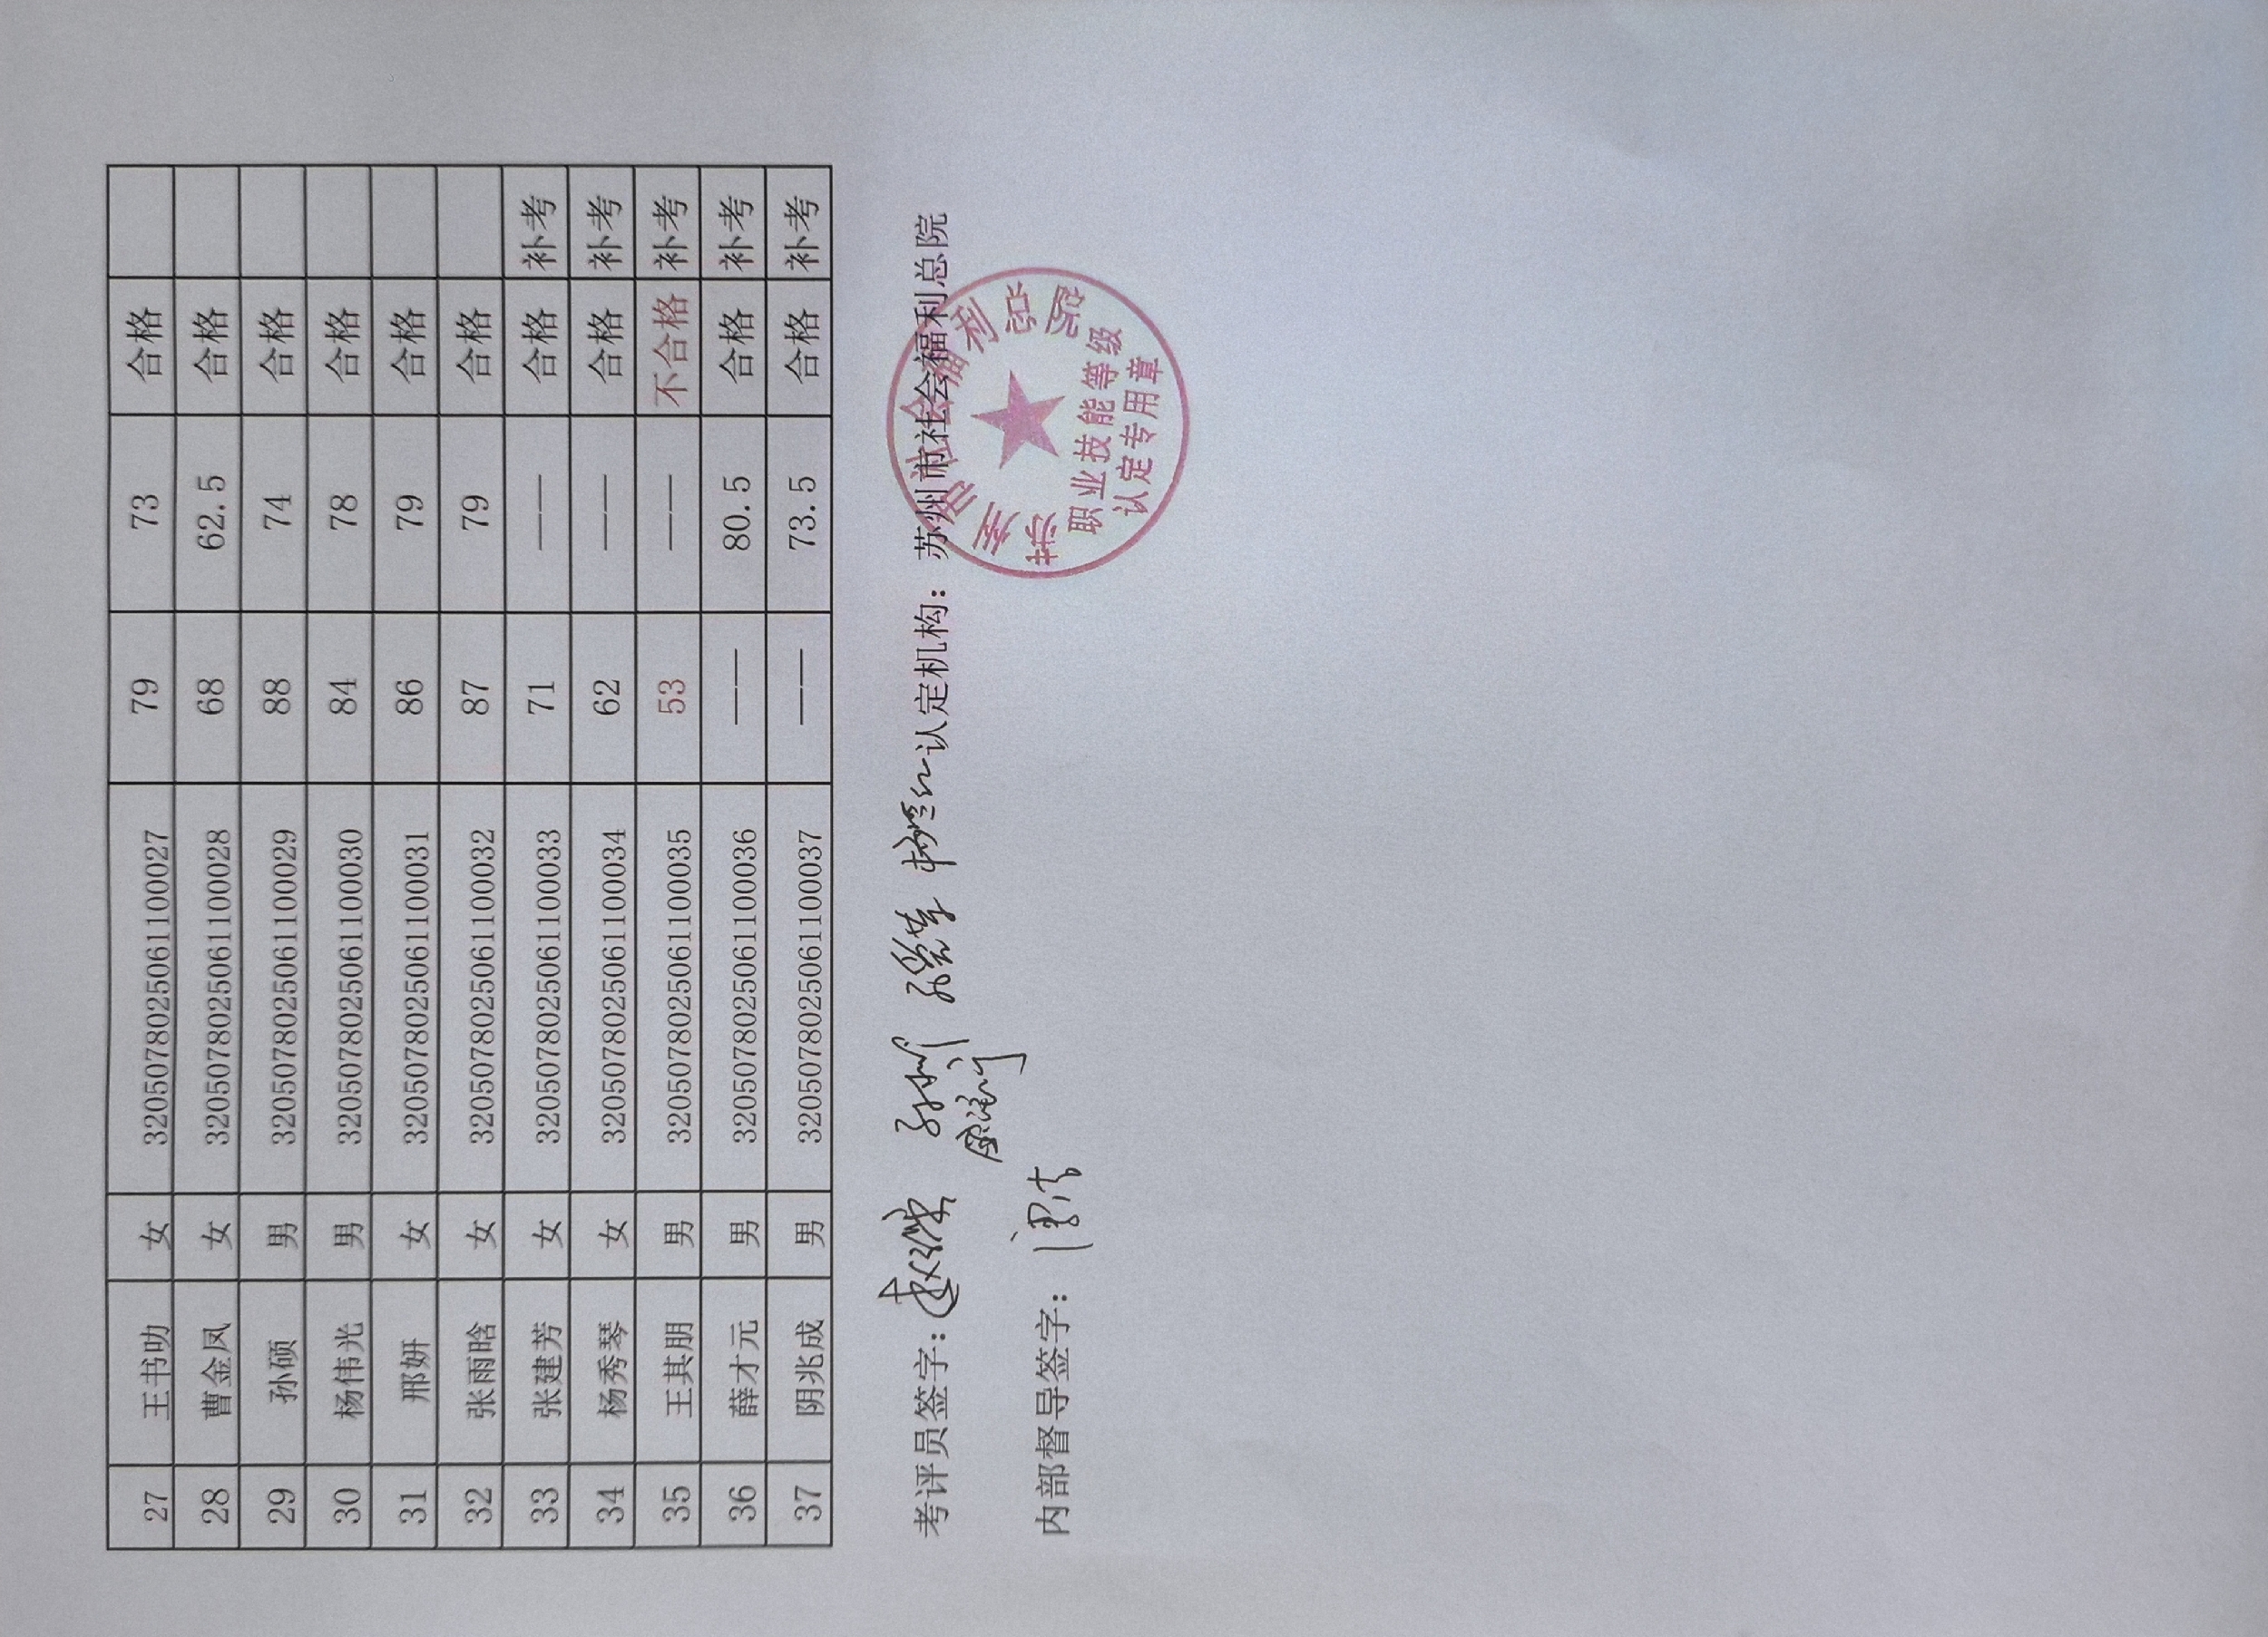 27 王书叻 女 3205078025061100027 79 73 合格
28 曹金凤 女 3205078025061100028 68 62.5 合格
29 孙硕 男 3205078025061100029 88 74 合格
30 杨伟光 男 3205078025061100030 84 78 合格
31 邢妍 女 3205078025061100031 86 79 合格
32 张雨晗 女 3205078025061100032 87 79 合格
33 张建芳 女 3205078025061100033 71 —— 合格 补考
34 杨秀琴 女 3205078025061100034 62 —— 合格 补考
35 王其朋 男 3205078025061100035 53 —— 不合格 补考
36 薛才元 男 3205078025061100036 —— 80.5 合格 补考
37 阴兆成 男 3205078025061100037 —— 73.5 合格 补考
考评员签字： 认定机构：苏州市社会福利总院
内部督导签字：
苏州市社会福利总院
职业技能等级
认定专用章